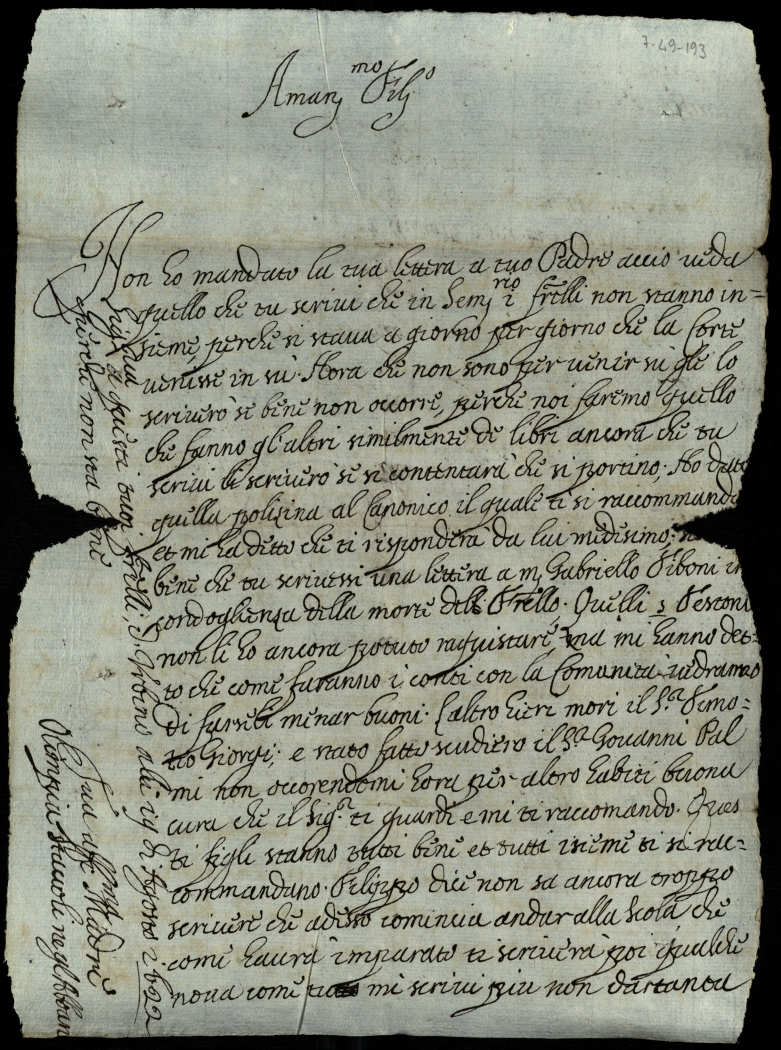 7-49-193
Aman.mo Figl.o
Non ho mandato la tua lettera a tuo Padre accio veda
quello che tu scrivi che in Sem.rio i fr̄elli non stanno in=
sieme, perche si stava a giorno per giorno che la Corte
venisse in su. Hora che non sono per venir su glie lo
scrivero se bene non occorre, perche noi faremo quello
che fanno gl'altri similmente de libri ancora che tu
scrivi li scrivero se si contentarà che si portino; Ho dato
quella polizina al Canonico il quale ti si raccommanda
et mi ha ditto che ti risponderà da lui medisimo;
bene che tu scrivessi una lettera a m. Gabriello Tiboni in
condoglienza della morte del Fr̄ello. Quelli 3 Testoni
non li ho ancora potuto raquistare, ma mi hanno det=
to che come faranno i conti con la Comunità vedramno
di farseli menar buoni. L'altro hieri mori il S.r Timo=
teo Giorgi; e stato fatto scudiero il S.r Giovanni Pal
mi non occorendomi hora per altro habiti buona
cura che il Sig.r ti guardi e mi ti raccomando. Ques
ti figli stanno tutti bene et tutti insieme ti si rac=
commandano. Filippo dice non sa ancora troppo
scrivere che adesso comincia andar alla scola che
come haurà imparato ti scriverà poi qualche
nova come tu mi scrivi piu non dar tanta
briga a questi tuoi fr̄elli, d'Urbino alli 19 di Agosto 1622
perche non sta bene
Tua aff.ma Madre
Olimpia Staccoli negl'Abbati